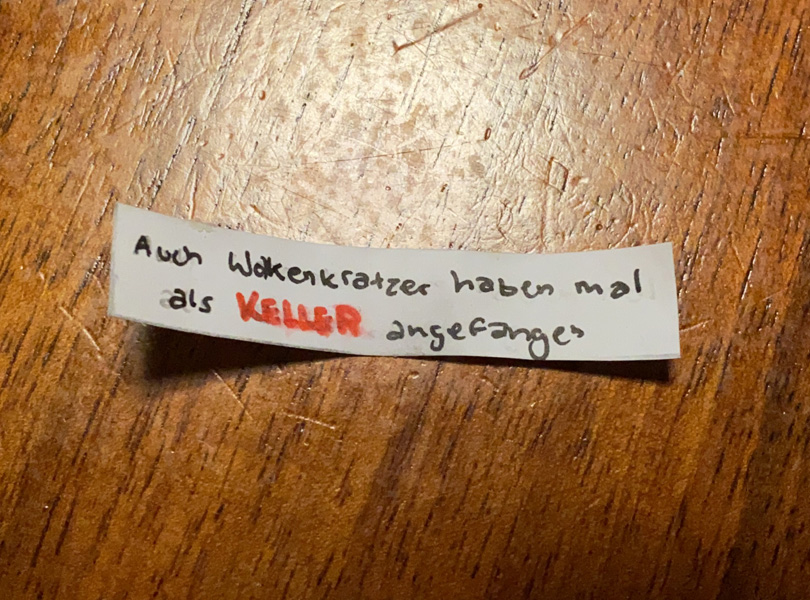 Auch Wolkenkratzer haben mal
als KELLER angefangen